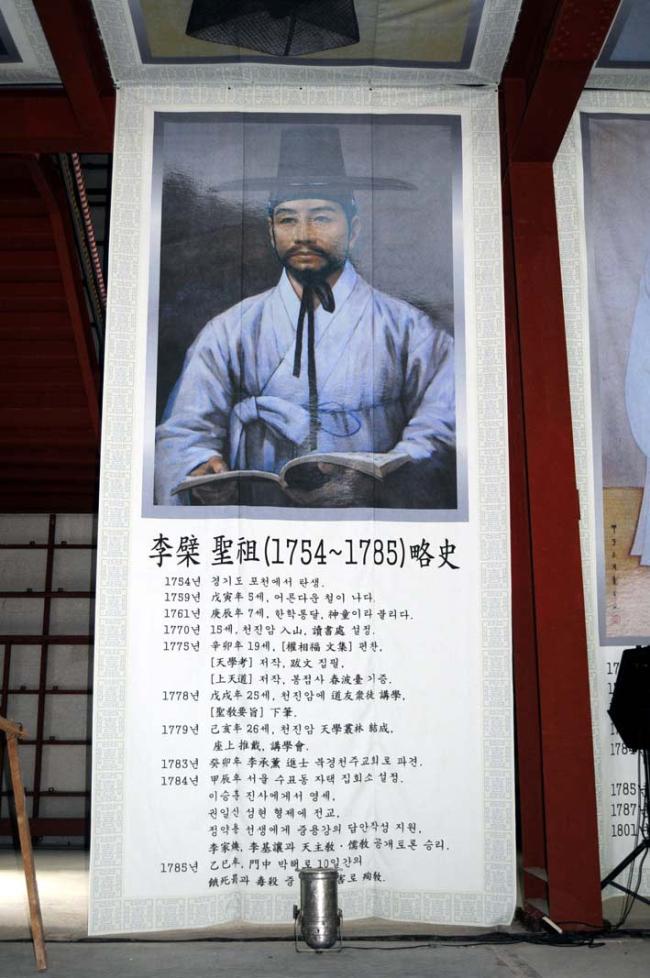 李檗 聖祖(1754~1785)略史
1754년 경기도 포천에서 탄생.
1759년 戊寅年 5세, 어른다운 철이 나다.
1761년 庚辰年 7세, 한학통달, 神童이라 불리다.
1770년 15세, 천진암 入山, 讀書處 설정.
1775년 辛卯年 19세, [權相福 文集] 편찬,
[天學考] 저작, 跋文 집필,
[上天道] 저작, 봉정사 春波臺 기증.
1778년 戊戌年 25세, 천진암에 道友衆徒 講學,
[聖敎要旨] 下筆.
1779년 己亥年 26세, 천진암 天學叢林 結成,
座上 推戴, 講學會.
1783년 癸卯年 李承薰 進士 북경천주교회로 파견.
1784년 甲辰年 서울 수표동 자택 집회소 설정.
이승훈 진사에게서 영세,
권일신 성현 형제에 전교,
정약용 선생에게 중용강의 답안작성 지원,
李家煥, 李基讓과 天主敎·儒敎 공개토론 승리.
1785년 乙巳年, 門中 박해로 10일간의
餓死罰과 毒殺 害로 殉敎.
1785년
1787년
1801년